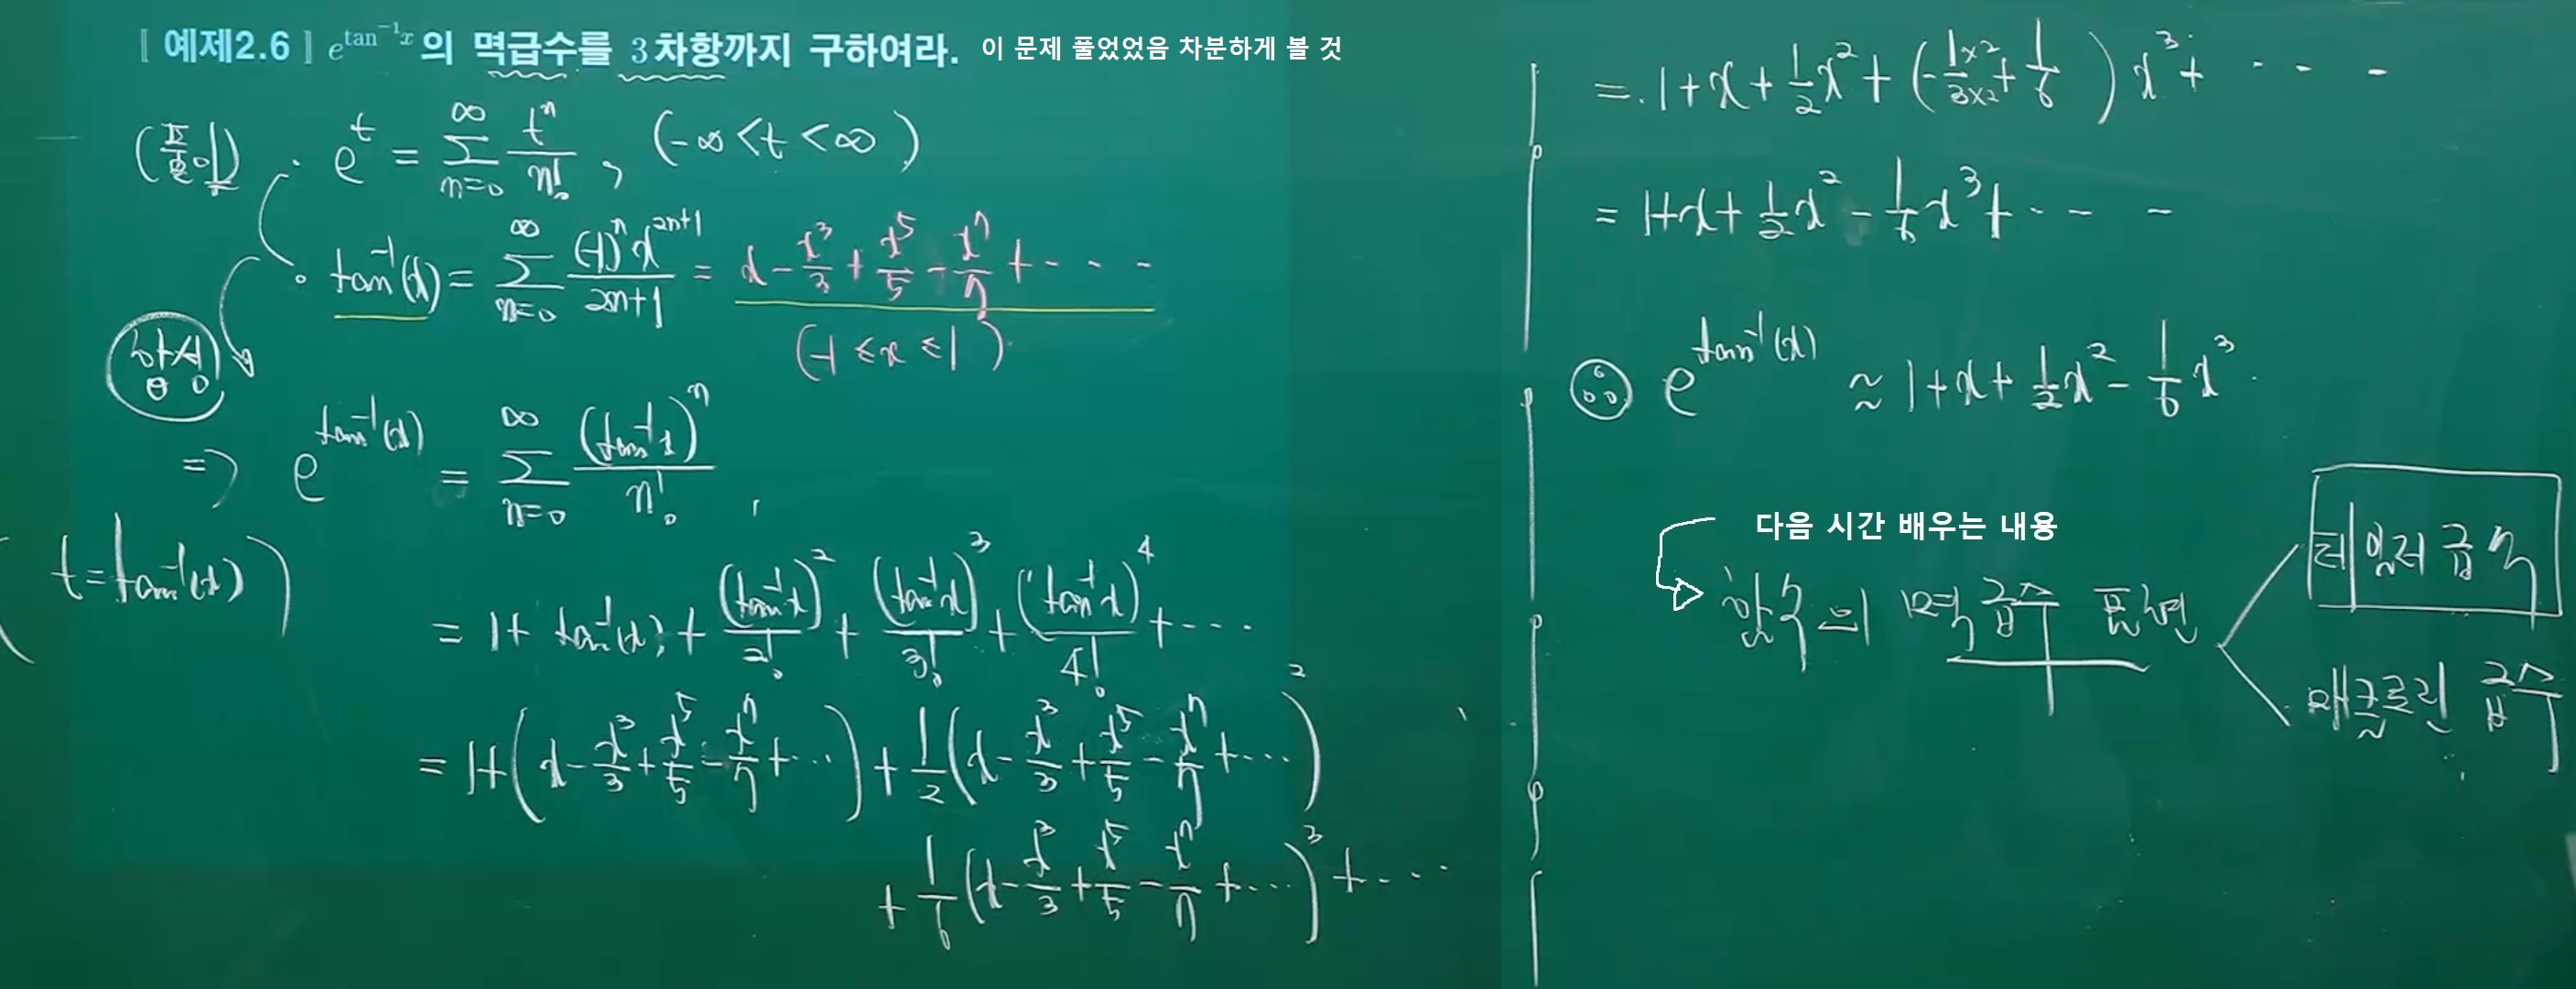 [ 예제2.6 ] e^{tan^{-1}x} 의 멱급수를 3차항까지 구하여라. 이 문제 풀었었음 차분하게 볼 것
(풀이) · e^t = ∑_{n=0}^{∞} t^n/n! , (-∞ < t < ∞)
· tan^{-1}(x) = ∑_{n=0}^{∞} (-1)^n x^{2n+1}/(2n+1) = x - x^3/3 + x^5/5 - x^7/7 + - - -
(-1 ≤ x ≤ 1)
합성
⇒ e^{tan^{-1}(x)} = ∑_{n=0}^{∞} (tan^{-1}x)^n/n!
(t = tan^{-1}(x))
= 1 + tan^{-1}(x) + (tan^{-1}x)^2/2! + (tan^{-1}x)^3/3! + (tan^{-1}x)^4/4! + - - -
= 1 + (x - x^3/3 + x^5/5 - x^7/7 + ···) + 1/2 (x - x^3/3 + x^5/5 - x^7/7 + ···)^2
+ 1/6 (x - x^3/3 + x^5/5 - x^7/7 + ···)^3 + - - -
= 1 + x + 1/2 x^2 + (- 1×2/3×2 + 1/6) x^3 + - - -
= 1 + x + 1/2 x^2 - 1/6 x^3 + - - -
∴ e^{tan^{-1}(x)} ≈ 1 + x + 1/2 x^2 - 1/6 x^3.
다음 시간 배우는 내용
함수의 멱급수 표현
테일러 급수
매클로린 급수